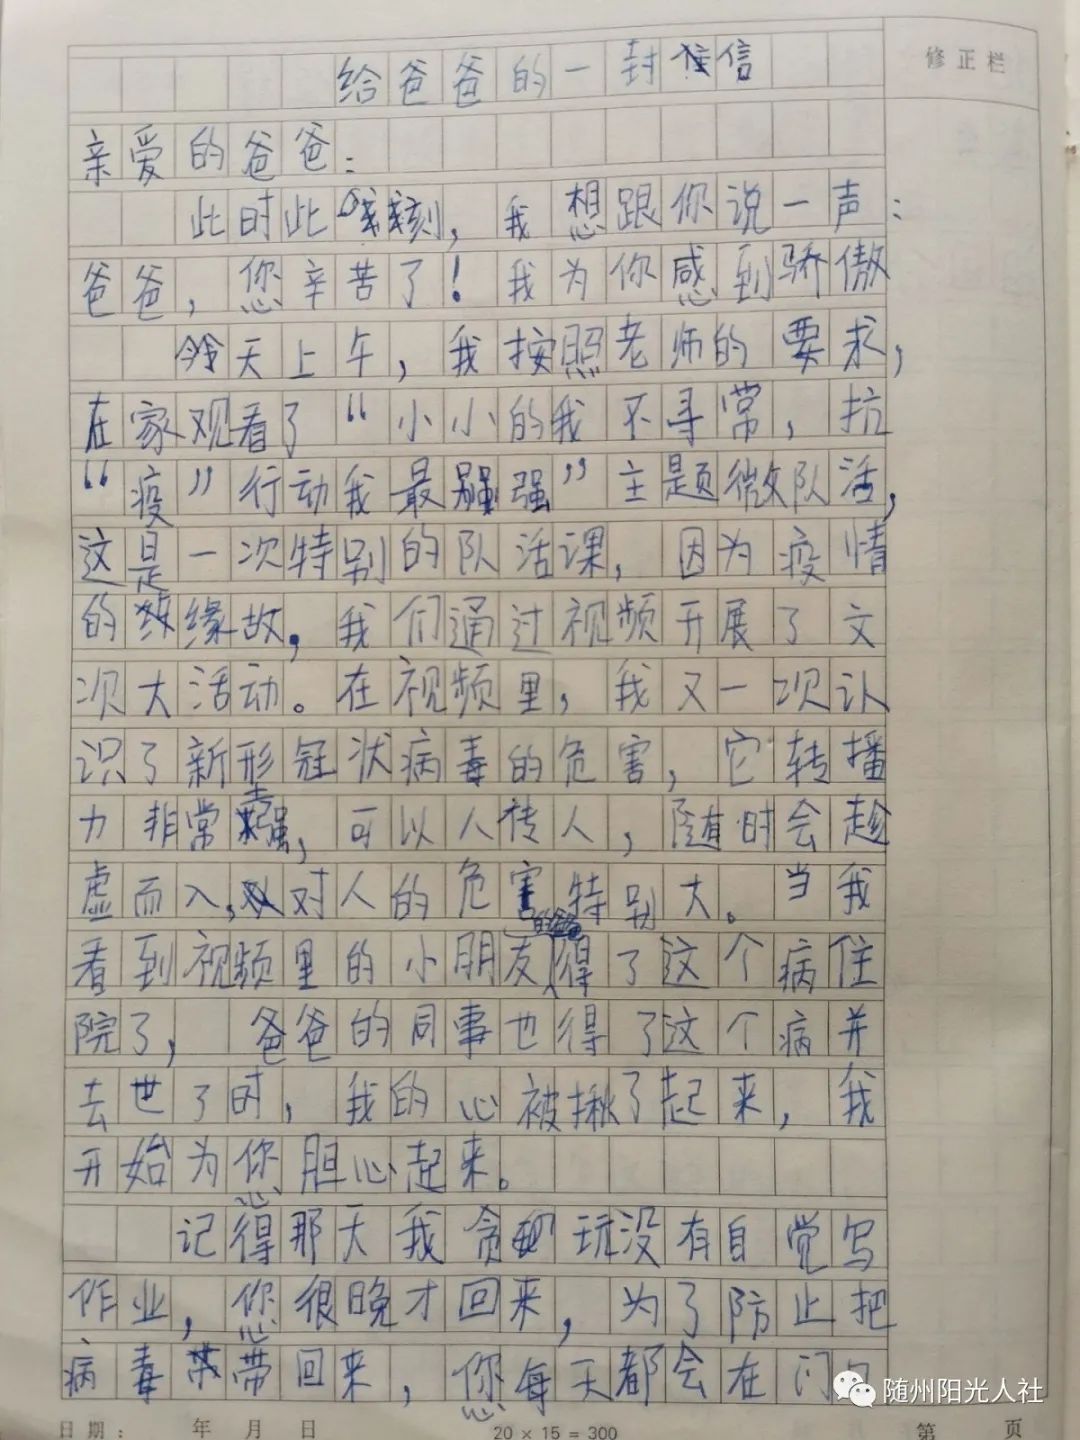 修正栏
给爸爸的一封信
亲爱的爸爸:
此时此刻,我想跟你说一声:
爸爸,您辛苦了!我为你感到骄傲
今天上午,我按照老师的要求,
在家观看了“小小的我不寻常,抗
“疫”行动我最强”主题微队活,
这是一次特别的队活课,因为疫情
的缘故,我们通过视频开展了文
次大活动。在视频里,我又一次认
识了新型冠状病毒的危害,它转播
力非常强,可以人传人,随时会趁
虚而入,对人的危害特别大。当我
看到视频里的小朋友得了这个病住
院了,爸爸的同事也得了这个病并
去世了时,我的心被揪了起来,我
开始为您胆心起来。
记得那天我贪玩没有自觉写
作业,您很晚才回来,为了防止把
病毒带回来,您每天都会在门
随州阳光人社
日期: 年 月 日 20×15=300 第 页